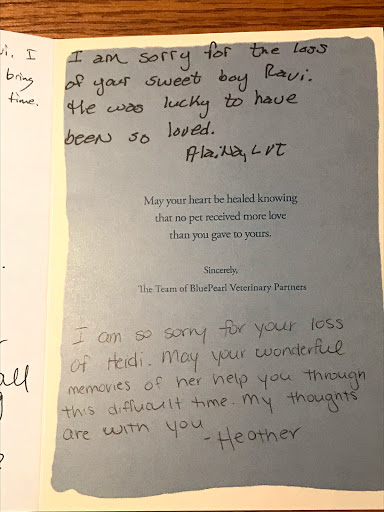 i. I
bring
time.
all
I am sorry for the loss
of your sweet boy Ravi.
He was lucky to have
been so loved.
Alaina, LVT
May your heart be healed knowing
that no pet received more love
than you gave to yours.
Sincerely,
The Team of BluePearl Veterinary Partners
I am so sorry for your loss
of Heidi. May your wonderful
memories of her help you through
this difficult time. My thoughts
are with you
- Heather